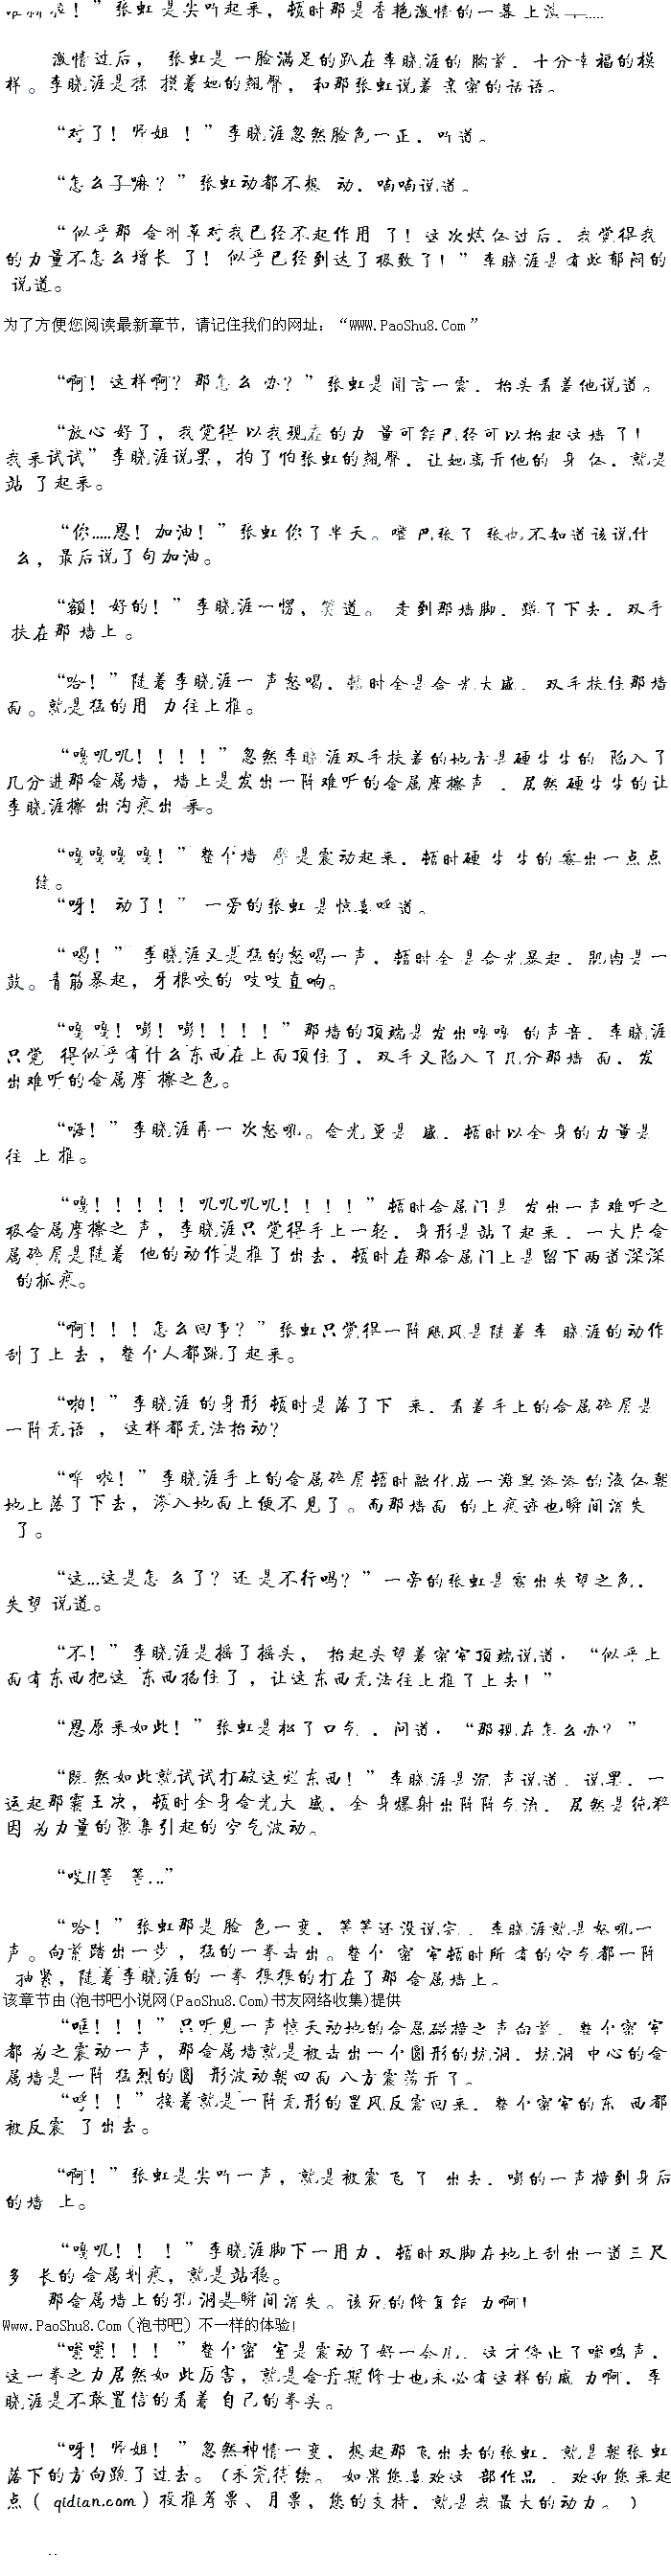 ”张虹是尖叫起来，顿时那是香艳激情的一幕上演......
激情过后， 张虹是一脸满足的趴在李晓涯的胸前，十分幸福的模
样。李晓涯是揉 摸着她的翘臀， 和那张虹说着 亲密的话语。
“对了！师姐 ！”李晓涯忽然脸色一正，叫道。
“怎么了嘛？”张虹动都不想 动，喃喃说道。
“似乎那 金刚草对我已经不起作用 了！这次炼体过后，我觉得我
的力量不怎么增长 了！似乎已经到达了极致了！”李晓涯是有些郁闷的
说道。
为了方便您阅读最新章节，请记住我们的网址：“WWW.PaoShu8.Com”
“啊！这样啊？那怎么 办？”张虹是闻言一震，抬头看着他说道。
“放心 好了，我觉得 以我现在的力 量可能已经可以抬起这墙 了！
我来试试”李晓涯说罢，拍了怕张虹的翘臀，让她离开他的 身 体，就是
站 了起来。
“你.....恩！加油！”张虹 你了半天。嘴 巴张了 张也不知道该说什
么，最后说了句加油。
“额！好的！”李晓涯一愣，笑道。 走到那墙脚，蹲了下去，双手
扶在那 墙上 。
“哈！”随着李晓涯一 声怒喝，顿时全是金 光大盛， 双手扶住那墙
面。就是猛的用 力往上推。
“嘎叽叽！！！！”忽然李晓涯双手扶着的地方是硬生生的 陷入了
几分进那金属墙，墙上是发出一阵难听的金属摩擦声 ，居然 硬生生的让
李晓涯擦 出沟痕出 来。
“嘎嘎嘎 嘎！”整个墙 壁是震动起来，顿时硬 生 生的 露出一点点
缝。
“呀！ 动了！” 一旁的张虹 是惊喜呼道。
“喝！”李晓涯又是猛的怒喝一声，顿时全 是金光暴起，肌肉是一
鼓。青筋暴起，牙根咬的 吱吱直响。
“嘎 嘎！嘭！嘭！！！！”那墙的顶端是发出嘎嘎 的声音，李晓涯
只觉 得似乎有什么东西在上面顶住了，双手又陷入了几分那墙 面，发
出难听的金属摩 擦之色。
“嗨！”李晓涯再一次怒吼。金光更是 盛，顿时以全身的力量是
往 上 推。
“嘎！！！！！叽叽叽叽！！！！”顿时金属门是 发出一声难听之
极金属摩擦之 声，李晓涯只 觉得手上一轻，身形是站了起来，一大片金
属碎屑是随着 他的动作是推了出去，顿时在那金属门上是留下两道深深
的抓痕。
“啊！！！怎么回事？”张虹只觉得一阵飓风是随着李 晓涯的动作
刮了上 去 ，整个人都跳了起来。
“啪！”李晓涯 的身形 顿时是落了下 来，看着手上的金属碎屑是
一阵无语 ，这样都无法抬动？
“哗 啦！”李晓涯手上的金属碎屑顿时融化成一滩黑漆漆 的液体朝
地上落了下去，渗入地面上便不见了。而那墙面 的上痕迹也瞬间消失
了。
“这...这是怎 么了？还 是不行吗？”一旁的张虹是露出失望之色，
失望 说道。
“不！”李晓涯是摇了摇头， 抬起头望着密室顶端说道：“似乎上
面有东西把这 东西掐住了，让这东西无法往上推了上去！”
“恩原来如此！”张虹是松了口气 ，问道：“那现在怎么办？”
“既 然如此就试试打破这烂东西！”李晓涯是沉 声说道，说罢，一
运起那霸王决，顿时全身金光大 盛，全 身爆射出阵阵气流， 居然是纯粹
因 为力量的聚集引起的空气波动。
“哎!!等 等...”
“哈！”张虹那是脸 色一变，等等还没说完，李晓涯就是怒吼一
声。向前踏出一步 ，猛的一拳击出。整个 密 室顿时所 有的空气都一阵
抽紧，随着李晓涯的 一拳 狠狠的打在了那 金属墙上。
该章节由(泡书吧小说网(PaoShu8.Com)书友网络收集)提供
“哐！！！”只听见一声惊天动地的金属碰撞之声向前，整个密室
都 为之震动一声，那金属墙就是被击出一个圆形的坑洞，坑洞 中心的金
属墙是一阵 猛烈的圆 形波动朝四面八方震荡开了。
“呼！！”接着就是一阵无形的罡风反震回来，整个密室的东 西都
被反震 了出去。
“啊！”张虹是尖叫一声，就是被震 飞 了 出去，嘭的一声撞到身后
的墙 上。
“嘎叽！！ ！”李晓涯脚下一用力，顿时双脚在地上刮出一道三尺
多 长的 金属划痕，就是站稳。
那金属墙上的坑 洞是瞬间消失。该死的修复能 力啊！
Www.PaoShu8.Com (泡书吧) 不一样的体验!
“嗡嗡！！！ ”整个密 室是震动了好一会儿，这才停止了嗡鸣声，
这一拳之力居然如 此厉害，就是金丹期修士也未必有这样的威 力啊，李
晓涯是不敢置信的看着 自己的拳头。
“呀！师姐！”忽然神情一变，想起那飞出去的张虹，就是朝张虹
落下的方向跑了过去。（未完待续。 如果您喜欢这 部作品 ，欢迎您来起
点（ qidian.com ）投推荐票、月票，您的支持，就是我最大的动力。 ）
..